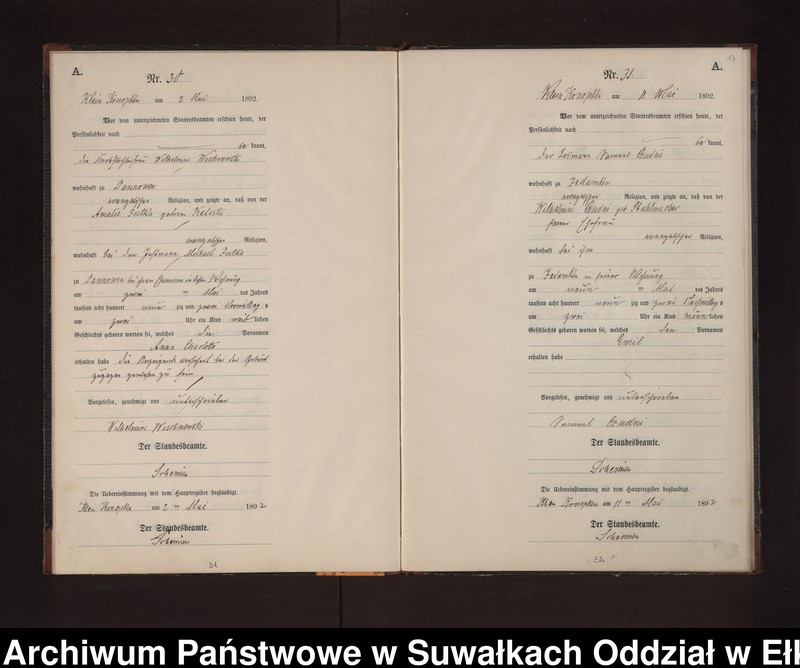 A.
Nr. 30
Klein Konopken am 2 Mai 1892
Vor dem unterzeichneten Standesbeamten erschien heute, der
Persönlichkeit nach
be kannt,
die Wilhelmine
wohnhaft zu Dannowen
evangelischer Religion, und zeigte an, daß von der
Amalie geboren
evangelischer Religion,
wohnhaft bei Michael
zu Dannowen bei ihrem in dessen Wohnung
am zwei ten Mai des Jahres
tausend acht hundert neun zig und zwei Vormittag s
um zwei Uhr ein Kind weib lichen
Geschlechts geboren worden sei, welches die Vornamen
Anna Charlotte
erhalten habe die bei der Geburt
zugegen gewesen zu sein
Vorgelesen, genehmigt und unterschrieben
Wilhelmine
Der Standesbeamte.
Die Uebereinstimmung mit dem Hauptregister beglaubigt.
Klein Konopken am 2 ten Mai 1892
Der Standesbeamte.
31
A.
17
Nr. 31
Klein Konopken am 11 Mai 1892
Vor dem unterzeichneten Standesbeamten erschien heute, der
Persönlichkeit nach
be kannt,
der Samuel
wohnhaft zu
evangelischer Religion, und zeigte an, daß von der
Wilhelmine geb
seiner Ehefrau
evangelischer Religion,
wohnhaft bei ihm
zu in seiner Wohnung
am neun ten Mai des Jahres
tausend acht hundert neun zig und zwei Nachmittag s
um zwei Uhr ein Kind männ lichen
Geschlechts geboren worden sei, welches den Vornamen
Emil
erhalten habe
Vorgelesen, genehmigt und unterschrieben
Samuel
Der Standesbeamte.
Die Uebereinstimmung mit dem Hauptregister beglaubigt.
Klein Konopken am 11 ten Mai 1892
Der Standesbeamte.
Archiwum Państwowe w Suwałkach Oddział w Eł